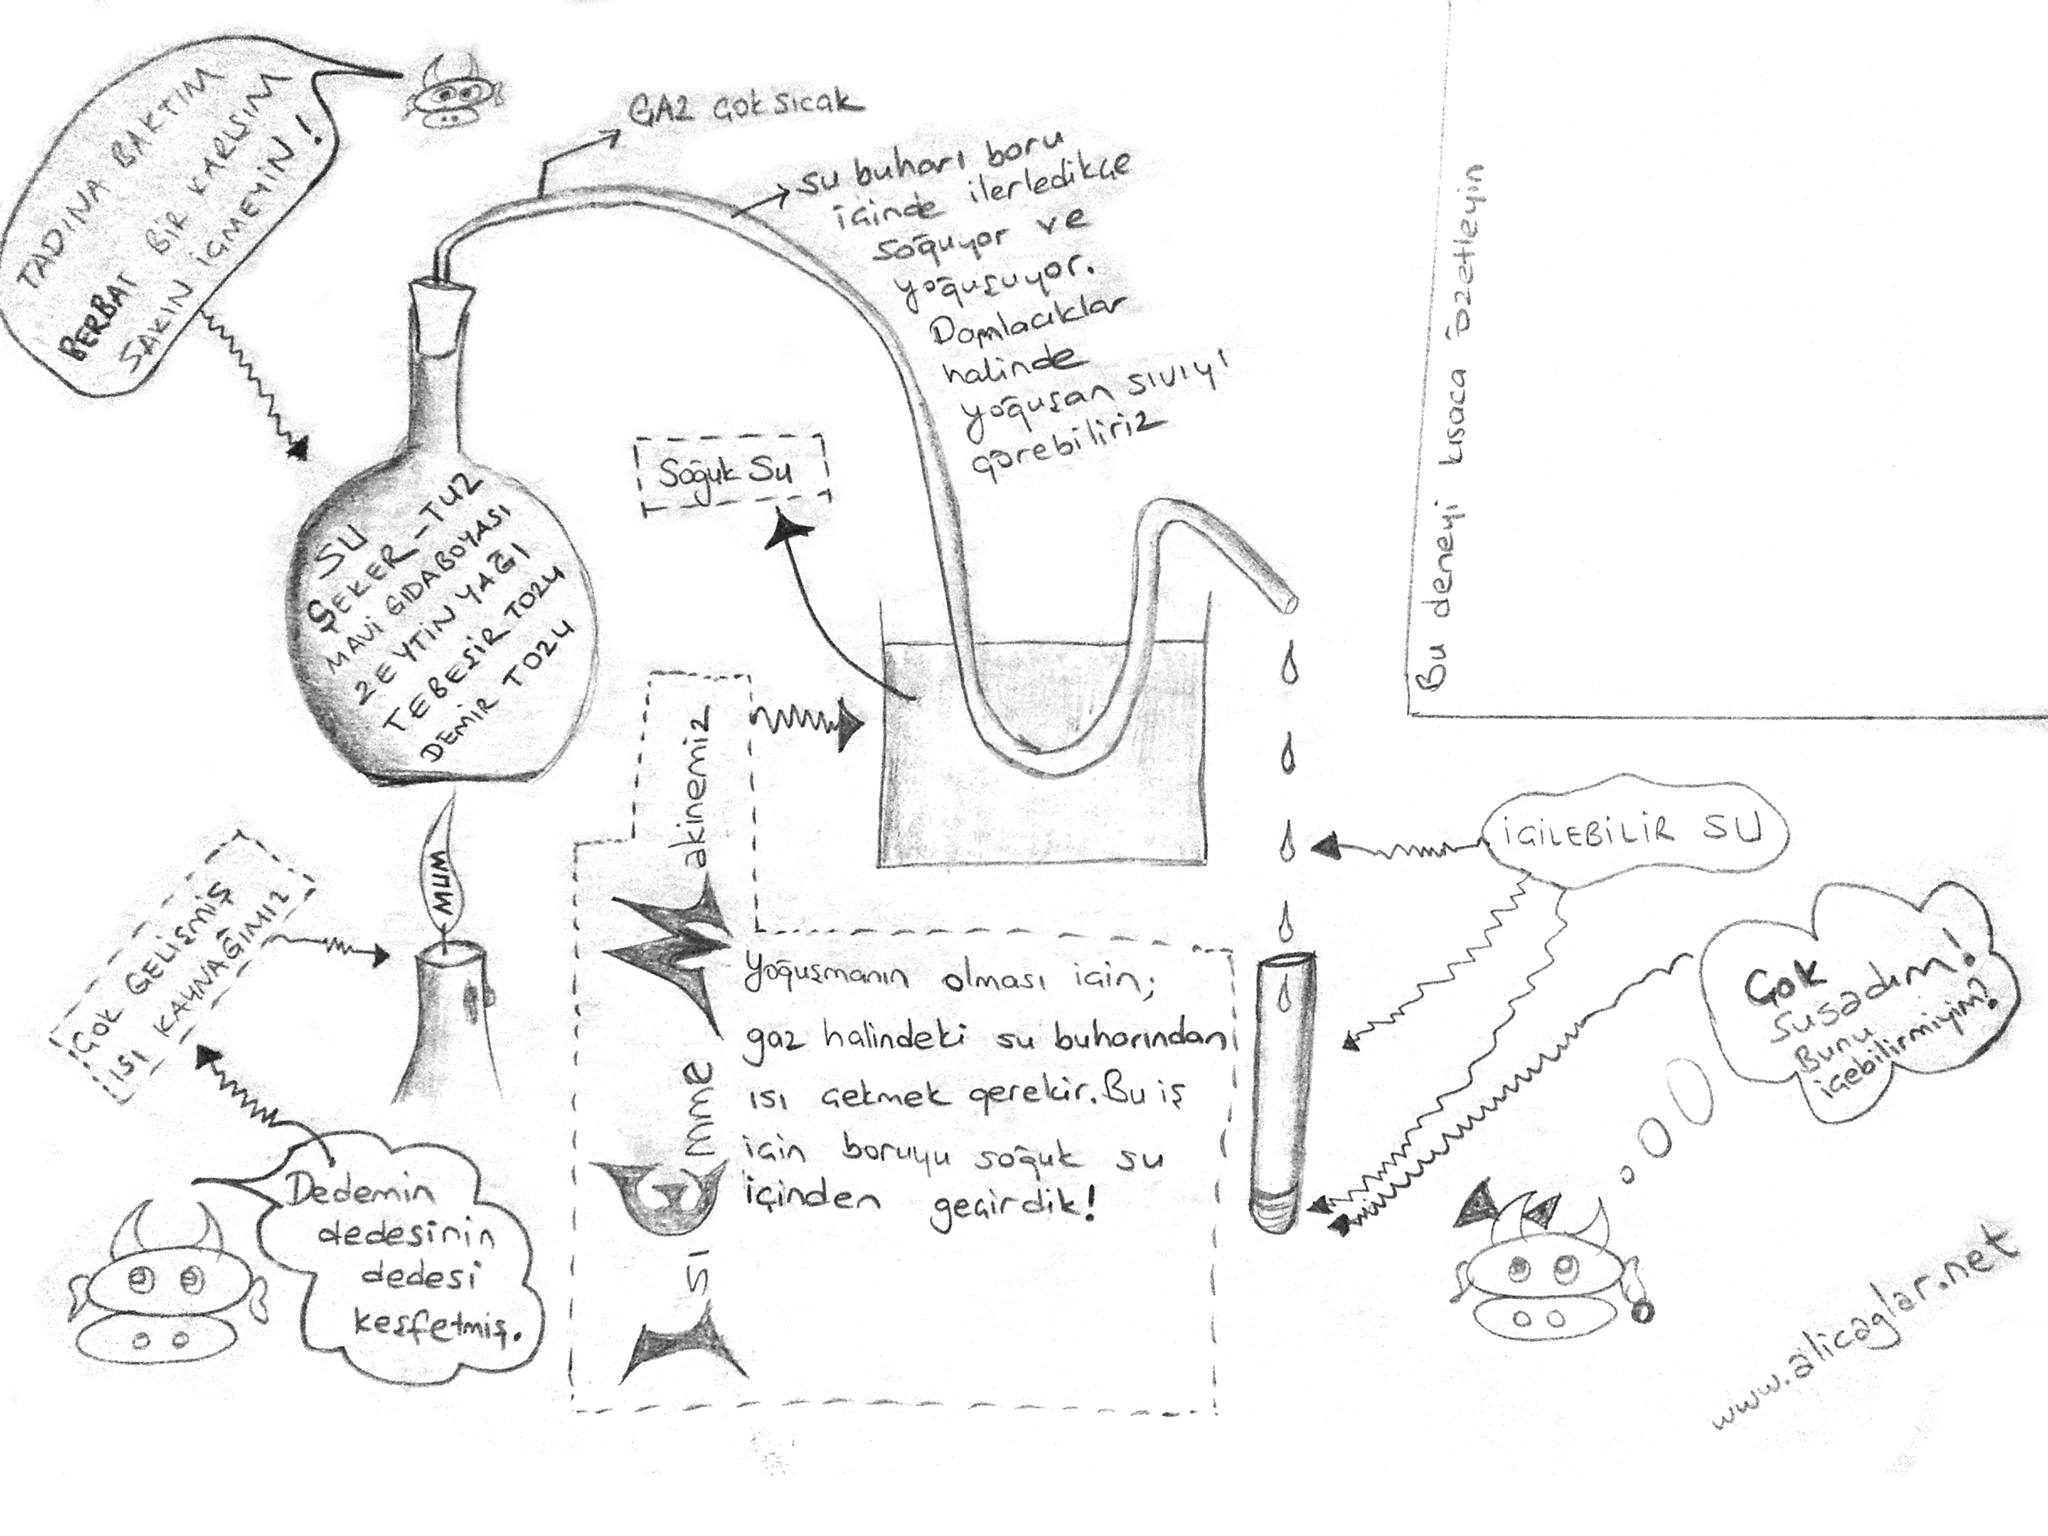 TADINA BAKTIM
BERBAT BİR KARIŞIM
SAKIN İÇMEYİN!
GAZ ÇOK SICAK
su buharı boru
içinde ilerledikçe
soğuyor ve
yoğuşuyor.
Damlacıklar
halinde
yoğuşan sıvıyı
görebiliriz
Bu deneyi kısaca özetleyin
Soğuk Su
SU
ŞEKER-TUZ
MAVİ GIDABOYASI
ZEYTİN YAĞI
TEBEŞİR TOZU
DEMİR TOZU
MUM
ÇOK GELİŞMİŞ
ISI KAYNAĞIMIZ
Dedemin
dedesinin
dedesi
keşfetmiş.
ISI
Emme
Makinemiz
Yoğuşmanın olması için;
gaz halindeki su buharından
ısı çekmek gerekir. Bu iş
için boruyu soğuk su
içinden geçirdik!
İÇİLEBİLİR SU
Çok
susadım!
Bunu
içebilirmiyim?
www.alicaglar.net